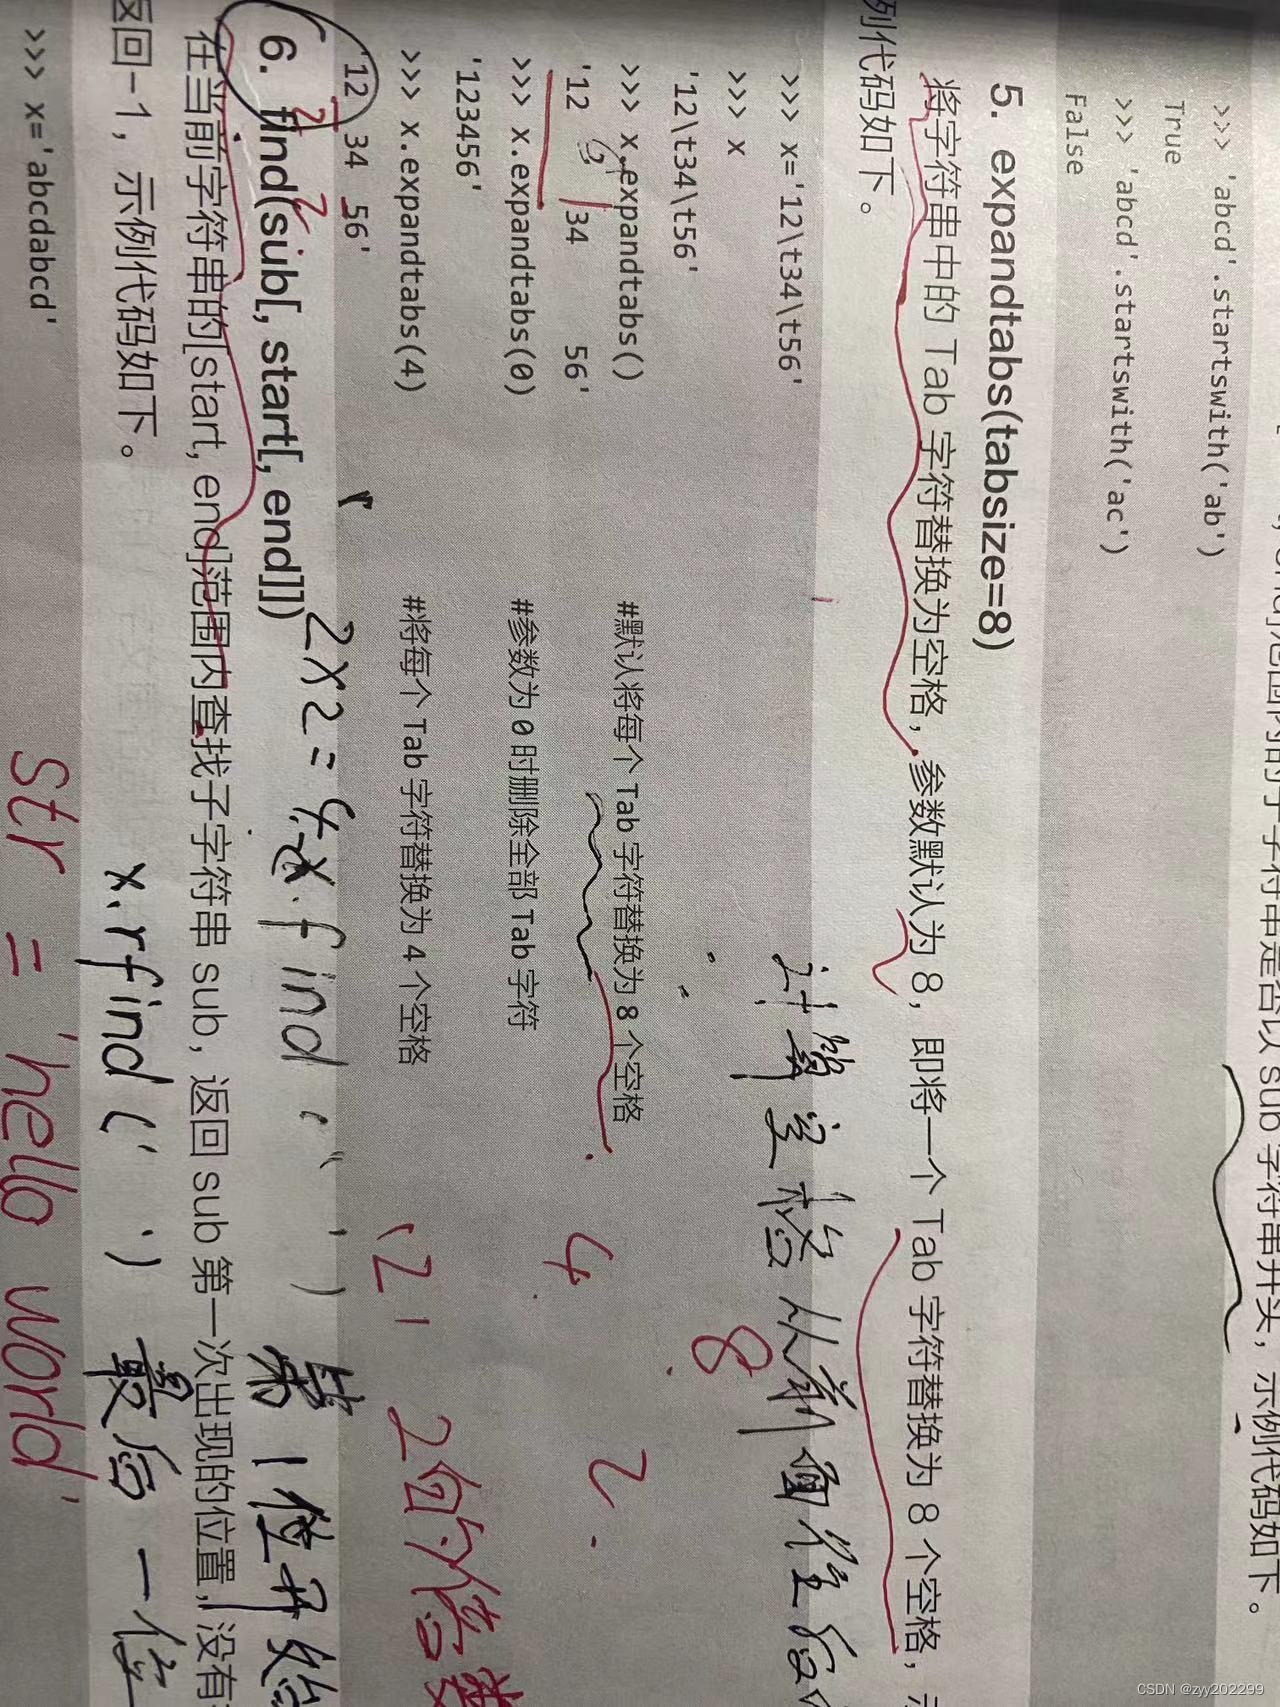 ，end]范围内的子字符串是否以 sub 字符串开头，示例代码如下。
>>> 'abcd'.startswith('ab')
True
>>> 'abcd'.startswith('ac')
False
5. expandtabs(tabsize=8)
将字符串中的 Tab 字符替换为空格，参数默认为 8，即将一个 Tab 字符替换为 8 个空格，示
列代码如下。
>>> x='12\t34\t56'
计算空格从前面往后
>>> x
8
'12\t34\t56'
>>> x.expandtabs() #默认将每个 Tab 字符替换为 8 个空格
'12 34 56'
4 2
>>> x.expandtabs(0) #参数为 0 时删除全部 Tab 字符
'123456'
>>> x.expandtabs(4) #将每个 Tab 字符替换为 4 个空格
2的倍数
'12 34 56'
2x2=4
6. find(sub[, start[, end]])
x.find( ' ) 第1位开始
在当前字符串的[start, end]范围内查找子字符串 sub，返回 sub 第一次出现的位置，没有
返回-1，示例代码如下。
x.rfind(' ') 最后一位
>>> x='abcdabcd'
str = 'hello world'
CSDN @zyy202299